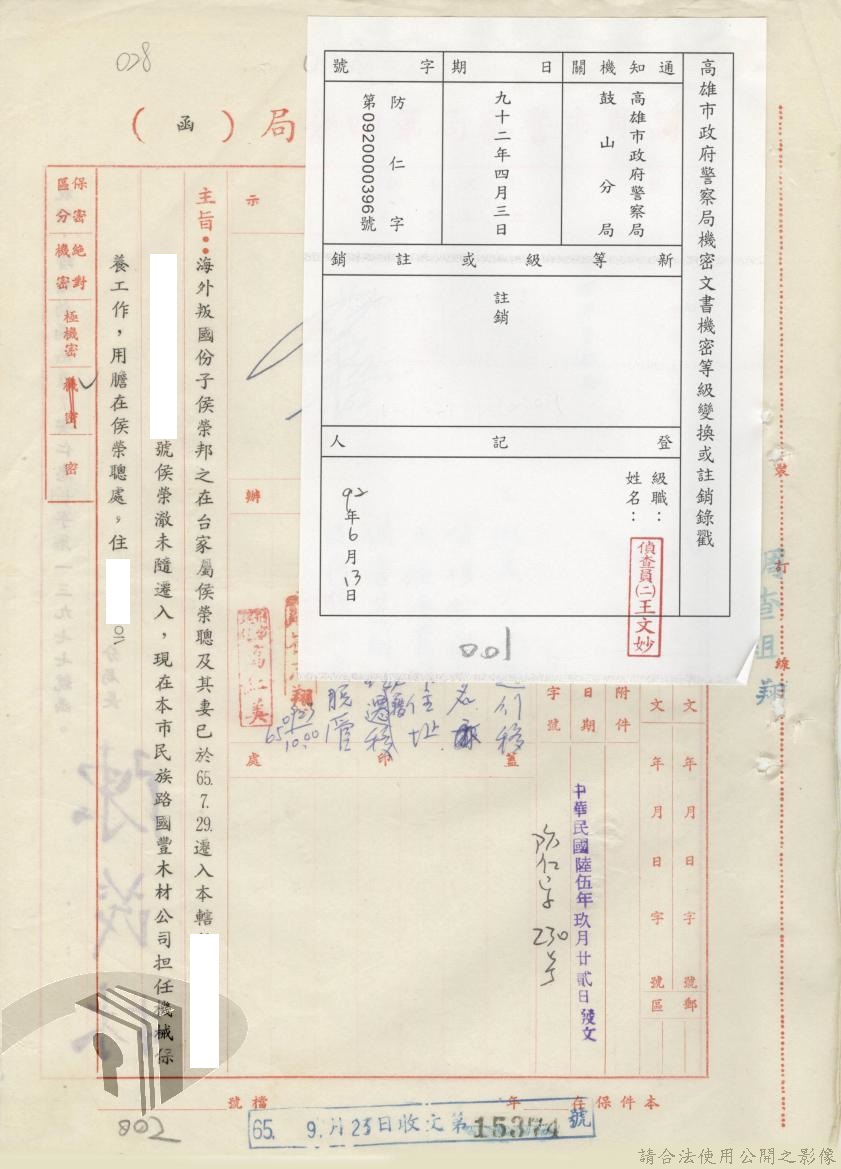 028
局（函）
高雄市政府警察局機密文書機密等級變換或註銷錄戳
通知機關
日期
字號
高雄市政府警察局
鼓山分局
九十二年四月三日
防仁字
第0920000396號
新等級或註銷
註銷
登記人
級職：
姓名：
偵查員(二)王文妙
92年6月13日
001
保密區分
絕對機密
極機密
機密
密
示
主旨：海外叛國份子侯榮邦之在台家屬侯榮聰及其妻已於65.7.29.遷入本轄
號侯榮澈未隨遷入，現在本市民族路國豐木材公司担任機械保
養工作，用膽在侯榮聰處，住
擬辦
裝
訂
線
附件
日期
字號
文 年 月 日 字 號
文 年 月 日 字 號
郵區
蓋印處
0923
65 10.00
中華民國陸伍年玖月廿貳日發文
防仁字 230号
本件保存 年
檔號
65. 9.月23日收文第15374號
002
請合法使用公開之影像